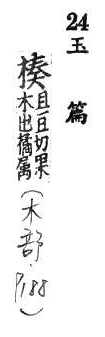 24
玉篇
楱且豆切果
木出橘属(木部 P188)